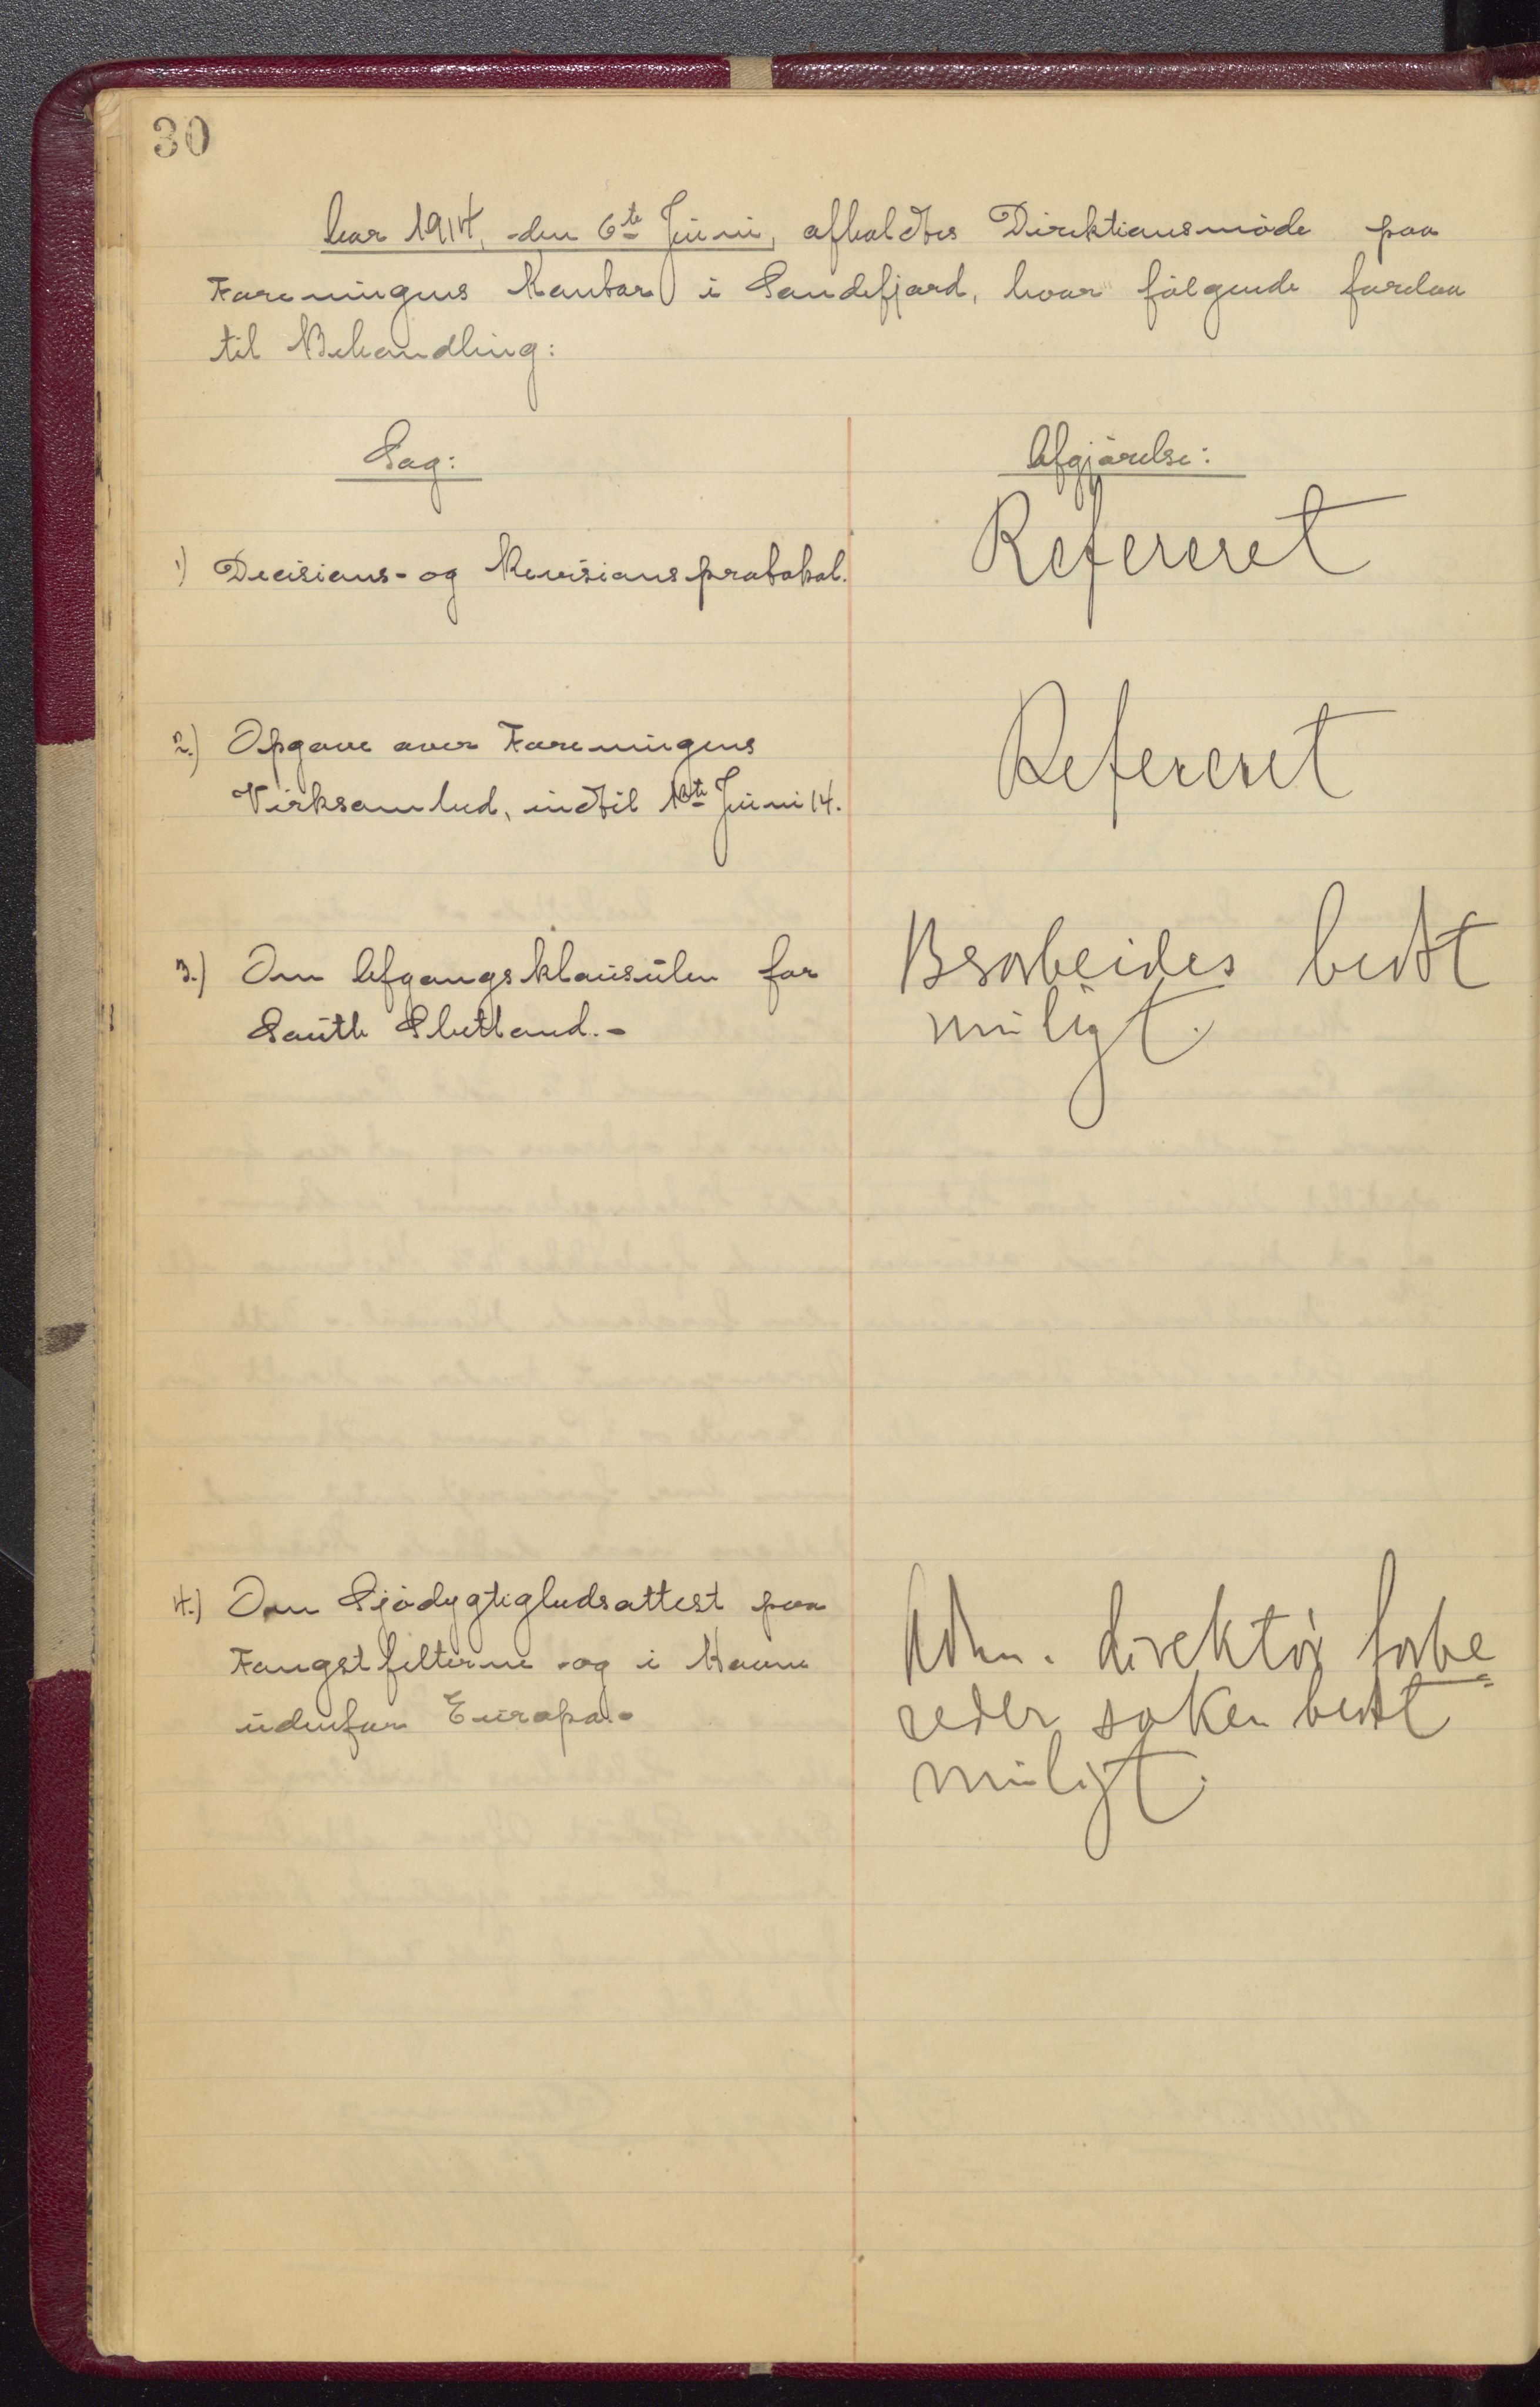 30
Aar 1914, den 6te Juni, afholdtes Direktionsmöde paa
Foreningens Kontor i Sandefjord, hvor fölgende forelaa
til Behandling:
Sag:
Afgjörelse:
1) Decisions- og Revisionsprotokol.
Refereret
2.) Opgave over Foreningens
Virksomhed, indtil 1ste Juni 14.
Refereret
3.) Om Afgangsklausulen for
South Shetland.-
Bearbeides bedst
muligt.
4.) Om Sjödygtighedsattest paa
Fangstfelterne og i Havne
udenfor Europa.-
Adm. direktör forbe
reder saken bedst
muligt.